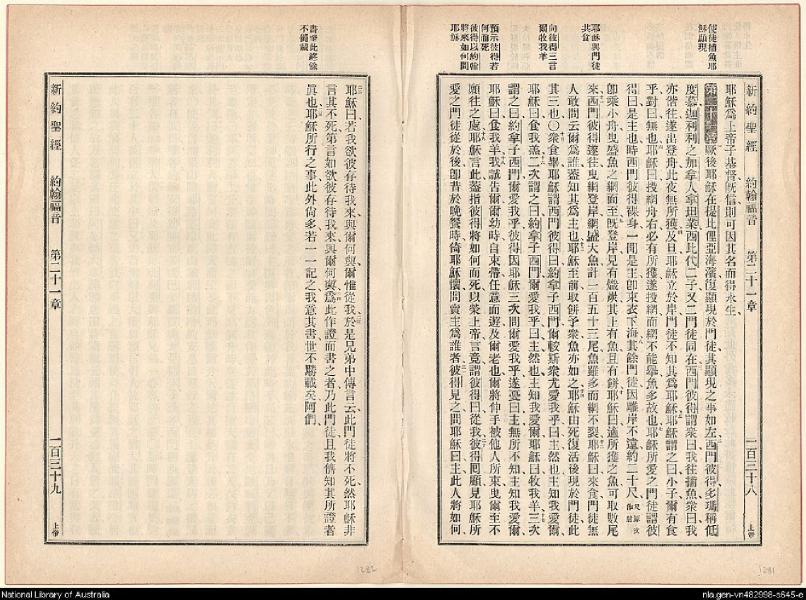 新約聖經 約翰福音 第二十一章 一百三十八 上帝
使徒捕魚耶
穌顯現
耶穌與門徒
共食
向彼得三言
爾牧我羊
預示彼得若
何而死
彼得以約翰
將來如何問
耶穌
耶穌爲上帝子基督旣信則可因其名而得永生
第二十一章 厥後耶穌在提比俚亞海濱復顯現於門徒其顯現之事如左西門彼得多瑪稱低
度慕迦利利之加拿人拿坦業西比代二子又二門徒同在西門彼得謂衆曰我往捕魚衆曰我
亦偕往遂出登舟此夜無所獲及旦耶穌立於岸門徒不知其爲耶穌耶穌謂之曰小子爾有食
乎對曰無也耶穌曰投網舟右必有所獲遂投網而網不能舉魚多故也耶穌所愛之門徒謂彼
得曰是主也時西門彼得裸身一聞是主卽束衣下海其餘門徒因離岸不遠約二十尺
卽乘小舟曳盛魚之網而至旣登岸見有熾炭其上有魚且有餅耶穌曰適所獲之魚可取數尾
來西門彼得遂往曳網登岸網盛大魚計一百五十三尾魚雖多而網不裂耶穌曰來食門徒無
人敢問云爾爲誰蓋知其爲主也耶穌至前取餅予衆魚亦如之耶穌由死復活後現於門徒此
其三也〇衆食畢耶穌謂西門彼得曰約拿子西門爾較斯衆尤愛我乎曰主然也主知我愛爾
耶穌曰食我羔二次謂之曰約拿子西門爾愛我乎曰主然也主知我愛爾耶穌曰牧我羊三次
謂之曰約拿子西門爾愛我乎彼得因耶穌三次問爾愛我乎遂憂曰主無所不知主知我愛爾
耶穌曰食我羊我誠告爾爾幼時自束帶任意而遊及爾老也爾將伸手被他人所束曳爾至不
願往之處耶穌言此蓋指彼得將如何而死以榮上帝言竟謂彼得曰從我彼得囘顧見耶穌所
愛之門徒從於後卽昔於晩餐時倚耶穌懷問賣主爲誰者彼得見之問耶穌曰主此人將如何
1281
書至此終餘
不備載
耶穌曰若我欲彼存待我來與爾何與爾惟從我於是兄弟中傳言云此門徒將不死然耶穌非
言其不死第言如欲彼存待我來與爾何與爲此作證而書之者乃此門徒且我儕知其所證者
眞也耶穌所行之事此外尙多若一一記之我意其書世不勝載矣阿們
新約聖經 約翰福音 第二十一章 一百三十九 上帝
1282
National Library of Australia
nla.gen-vn482998-s645-e